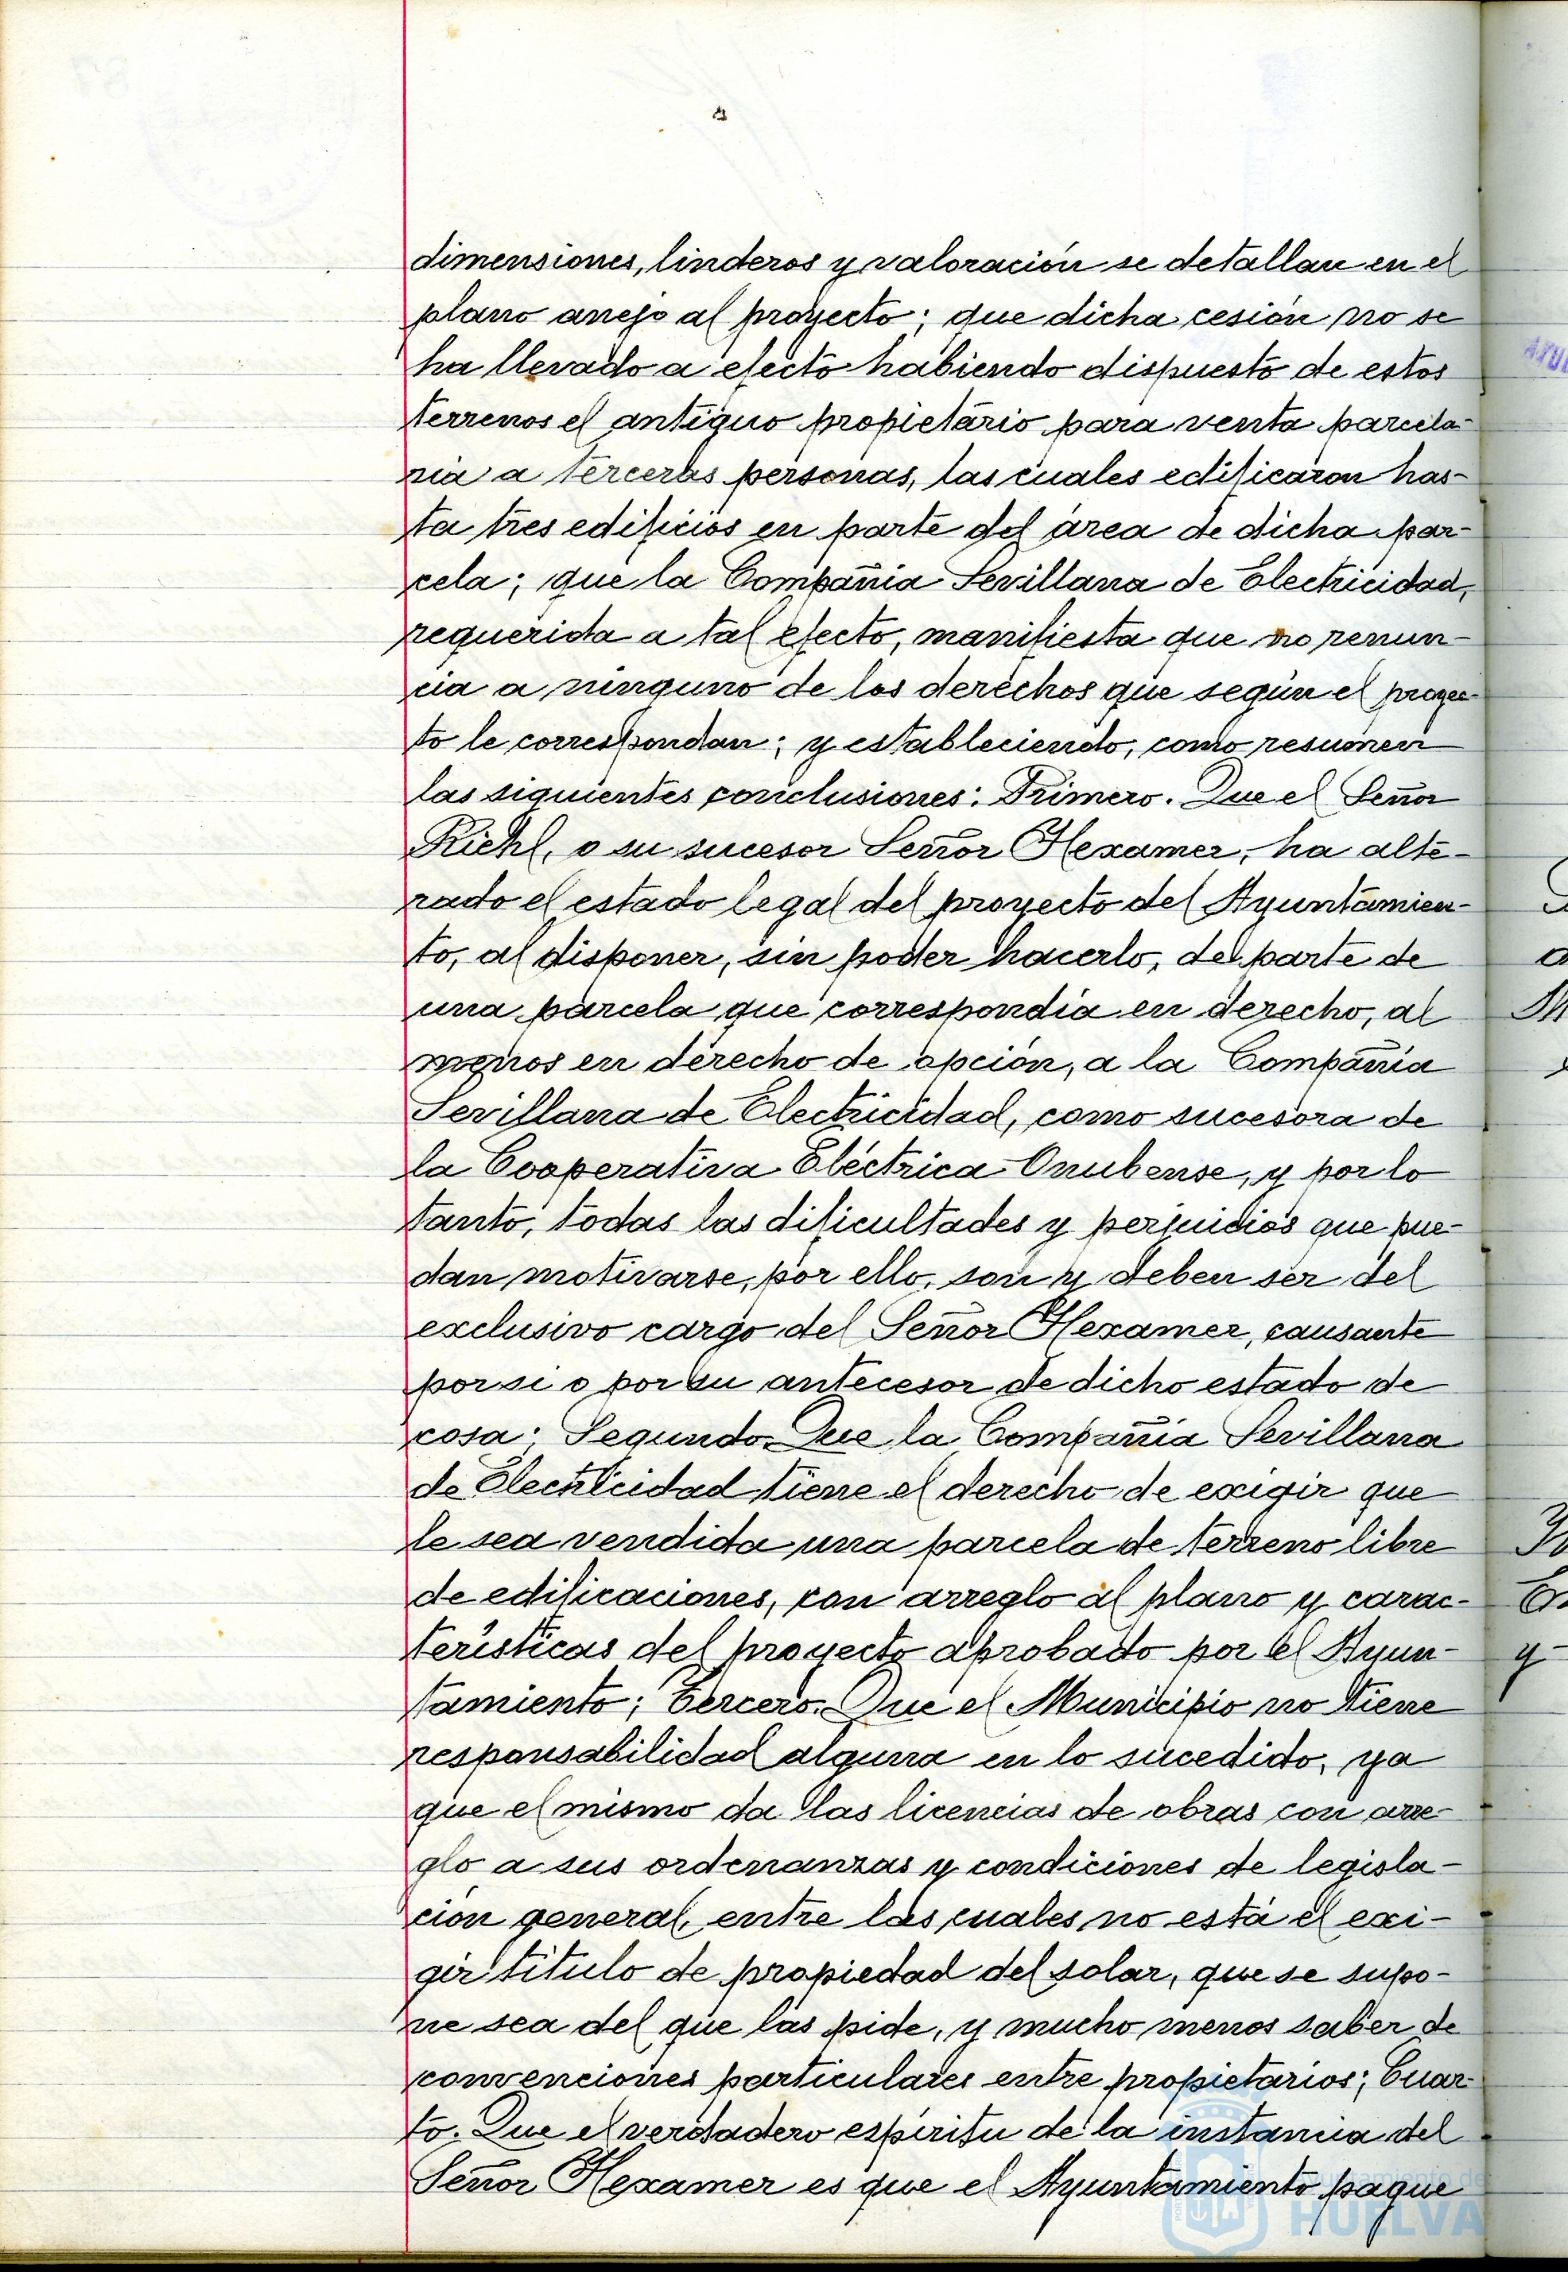 dimensiones, linderos y valoración se detallan en el
plano anejo al proyecto; que dicha cesión no se
ha llevado a efecto habiendo dispuesto de estos
terrenos el antiguo propietario para venta parcela-
ria a terceras personas, las cuales edificaron has-
ta tres edificios en parte del área de dicha par-
cela; que la Compañia Sevillana de Electricidad,
requerida a tal efecto, manifiesta que no renun-
cia a ninguno de los derechos que según el proyec-
to le correspondan; y estableciendo, como resumen
las siguientes conclusiones: Primero. Que el Señor
Riehl, o su sucesor Señor Hexamer, ha alte-
rado el estado legal del proyecto del Ayuntamien-
to, al disponer, sin poder hacerlo, de parte de
una parcela que correspondia en derecho, al
menos en derecho de opción, a la Compañia
Sevillana de Electricidad, como sucesora de
la Cooperativa Eléctrica Onubense, y por lo
tanto, todas las dificultades y perjuicios que pue-
dan motivarse, por ello, son y deben ser del
exclusivo cargo del Señor Hexamer, causante
por si o por su antecesor de dicho estado de
cosa; Segundo. Que la Compañia Sevillana
de Electricidad tiene el derecho de exigir que
le sea vendida una parcela de terreno libre
de edificaciones, con arreglo al plano y carac-
teristicas del proyecto aprobado por el Ayun-
tamiento; Tercero. Que el Municipio no tiene
responsabilidad alguna en lo sucedido, ya
que el mismo da las licencias de obras con arre-
glo a sus ordenanzas y condiciones de legisla-
ción general, entre las cuales no está el exi-
gir titulo de propiedad del solar, que se supo-
ne sea del que las pide, y mucho menos saber de
convenciones particulares entre propietarios; Cuar-
to. Que el verdadero espiritu de la instancia del
Señor Hexamer es que el Ayuntamiento pague
Ayuntamiento de
HUELVA